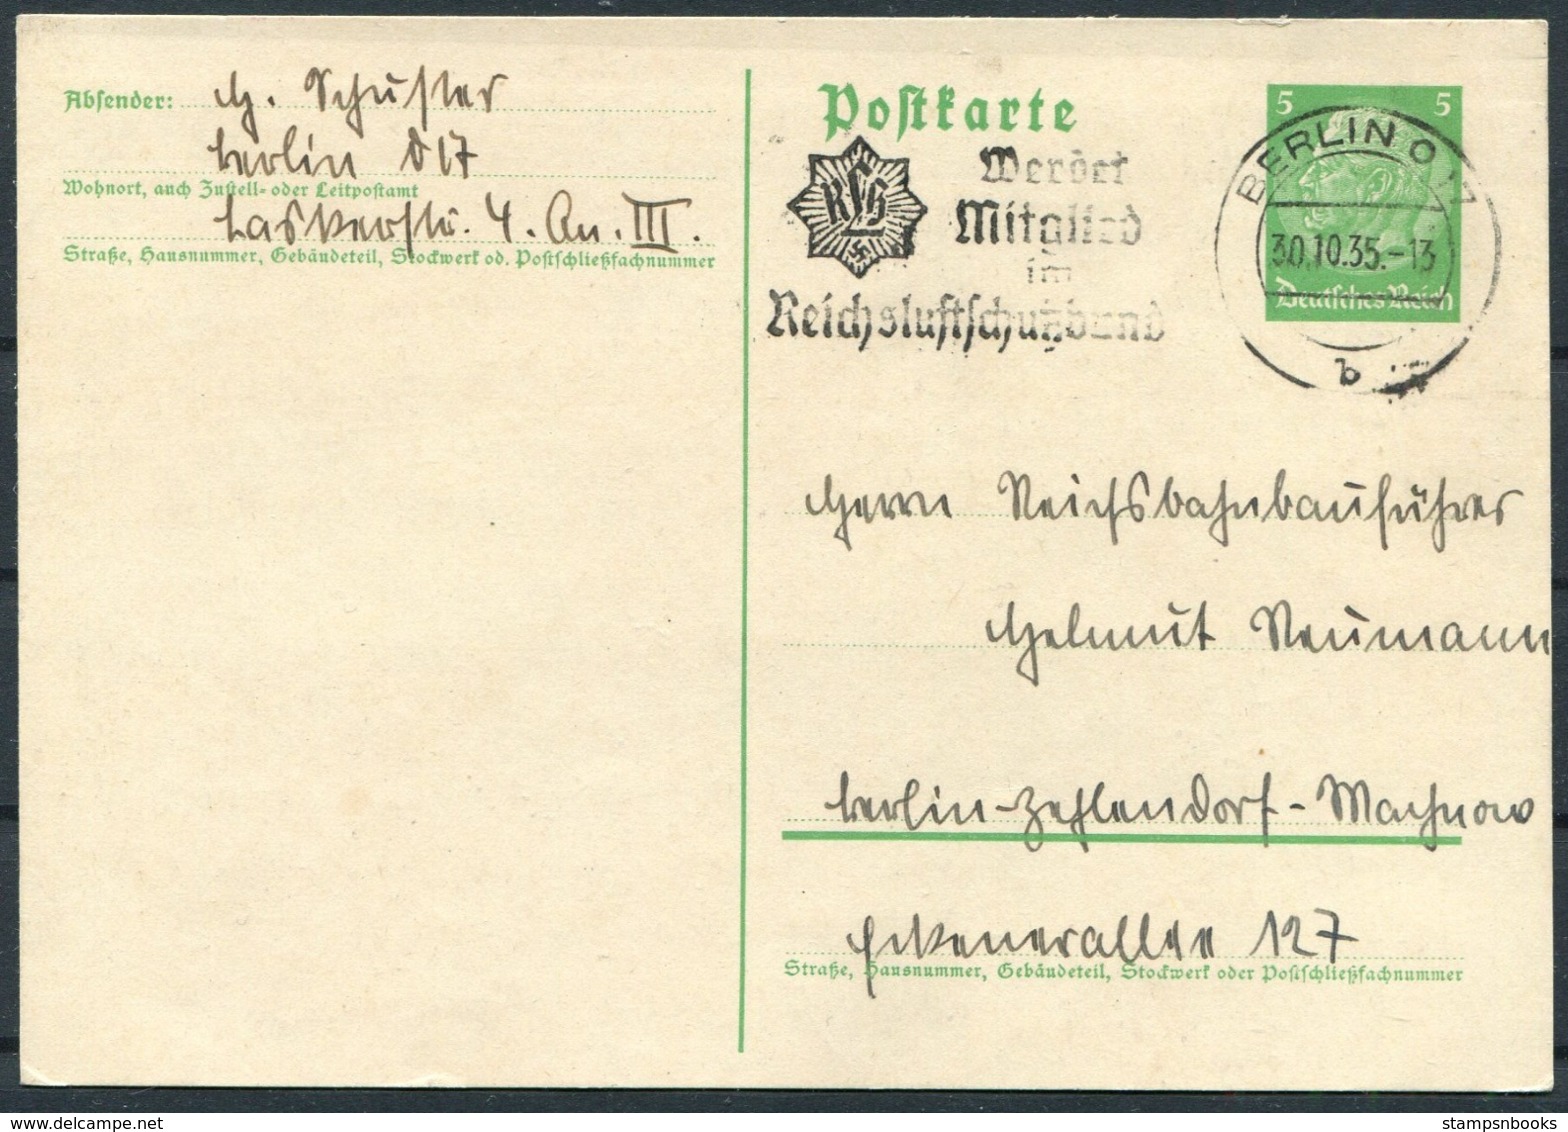 Absender: H. Schuster
Berlin O 17
Wohnort, auch Zustell- oder Leitpostamt
Laskerstr. 4. Au. III.
Straße, Hausnummer, Gebäudeteil, Stockwerk od. Postschließfachnummer
Postkarte
RLB
Werdet
Mitglied
im
Reichsluftschutzbund
BERLIN O 17
30.10.35.-13
b
5 5
Deutsches Reich
Herrn Reichsbahnbauführer
Helmut Neumann
Berlin-Zehlendorf-Machnow
Eckenerallee 127
Straße, Hausnummer, Gebäudeteil, Stockwerk oder Postschließfachnummer
stampsnbooks